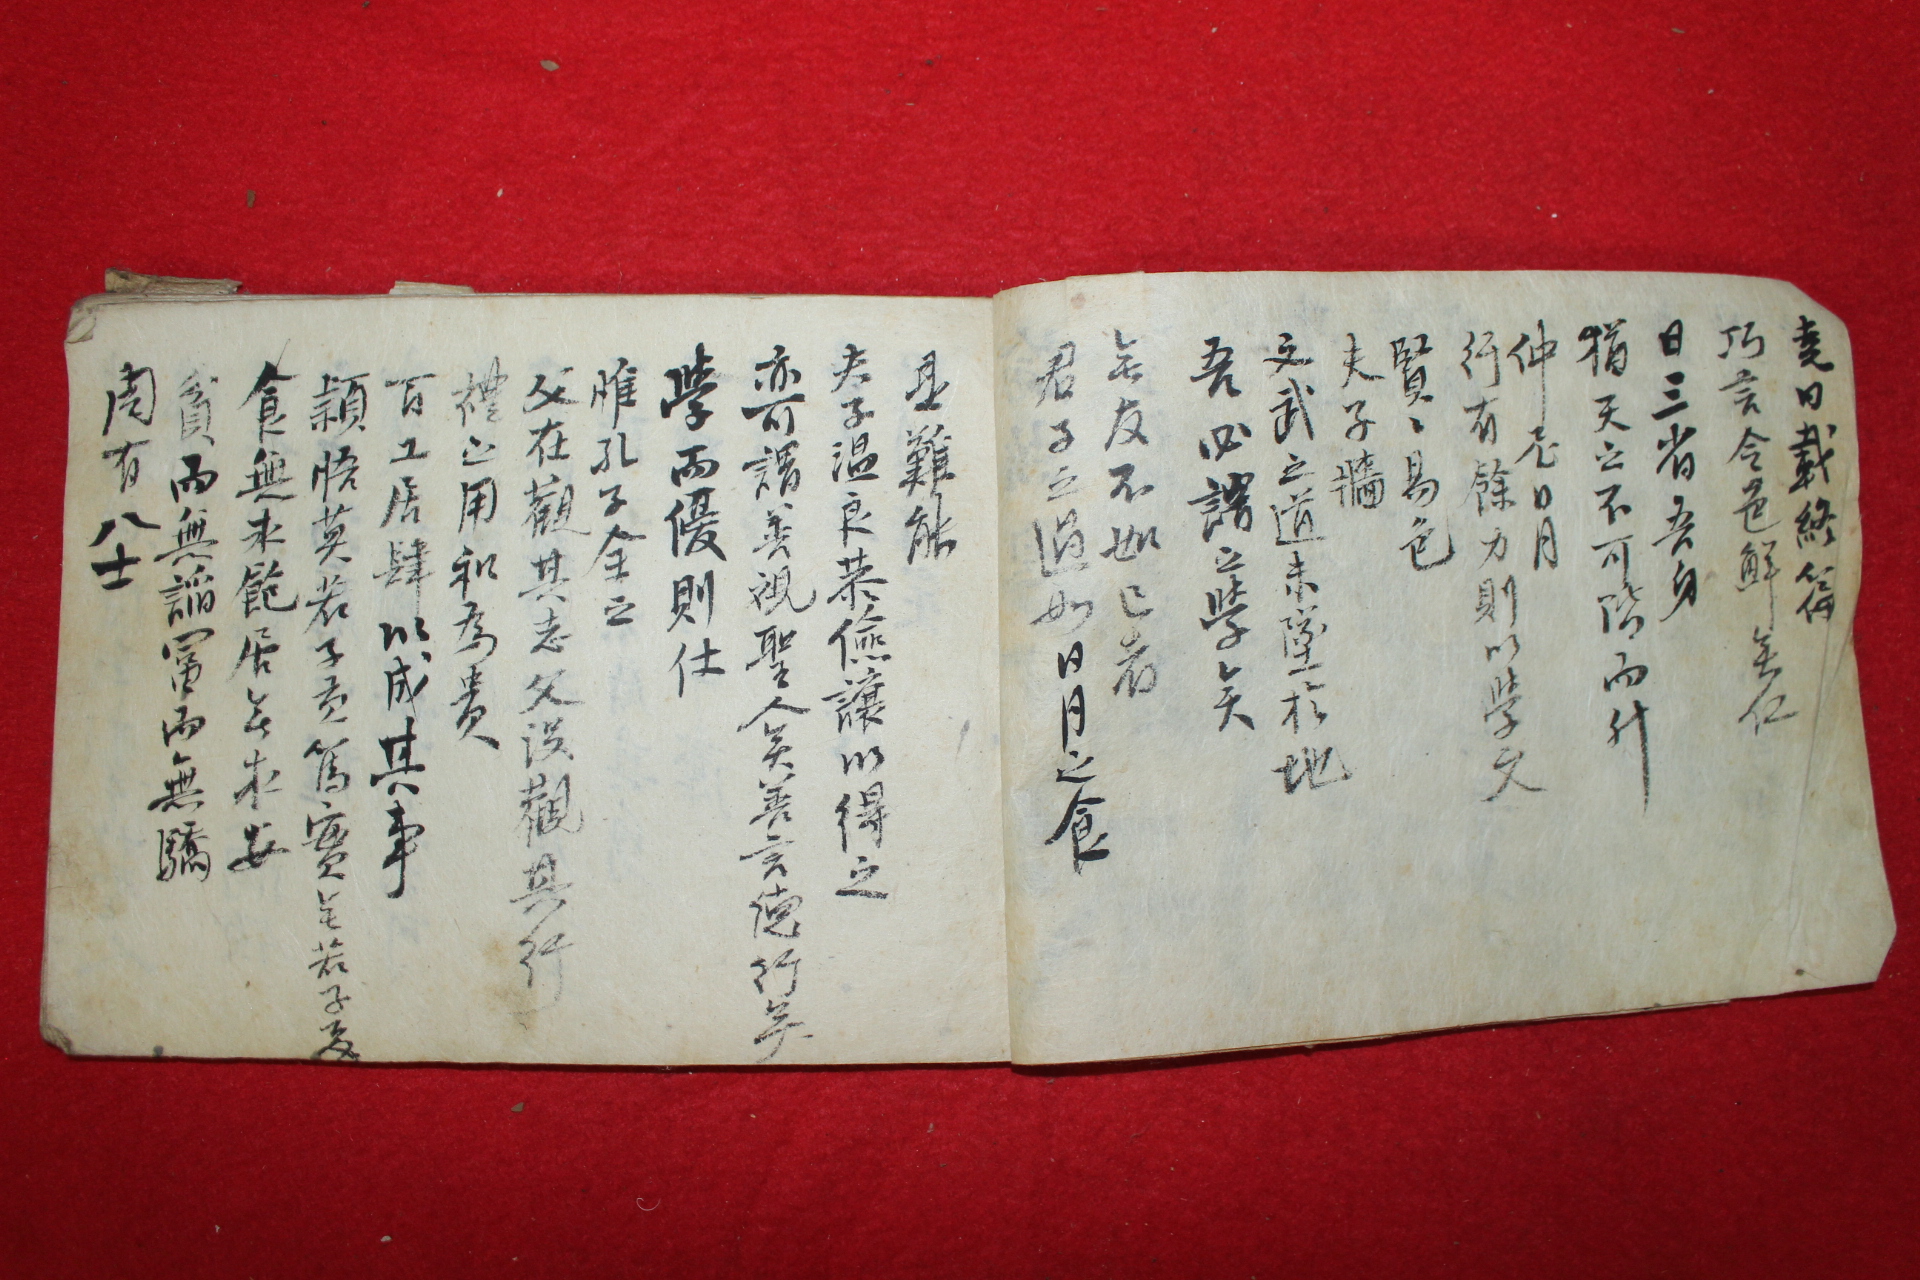 堯曰載終篇
巧言令色鮮矣仁
日三省吾身
猶天之不可階而升
仲尼日月
行有餘力則以學文
賢〻易色
夫子牆
文武之道未墜於地
吾必謂之學矣
無友不如己者
君子之過如日月之食
是難能
夫子溫良恭儉讓以得之
亦可謂善視聖人矣善言德行矣
學而優則仕
惟孔子全之
父在觀其志父没觀其行
禮之用和為貴
百工居肆以成其事
穎悟莫若子貢篤實無若子夏
食無求飽居無求安
貧而無諂富而無驕
周有八士